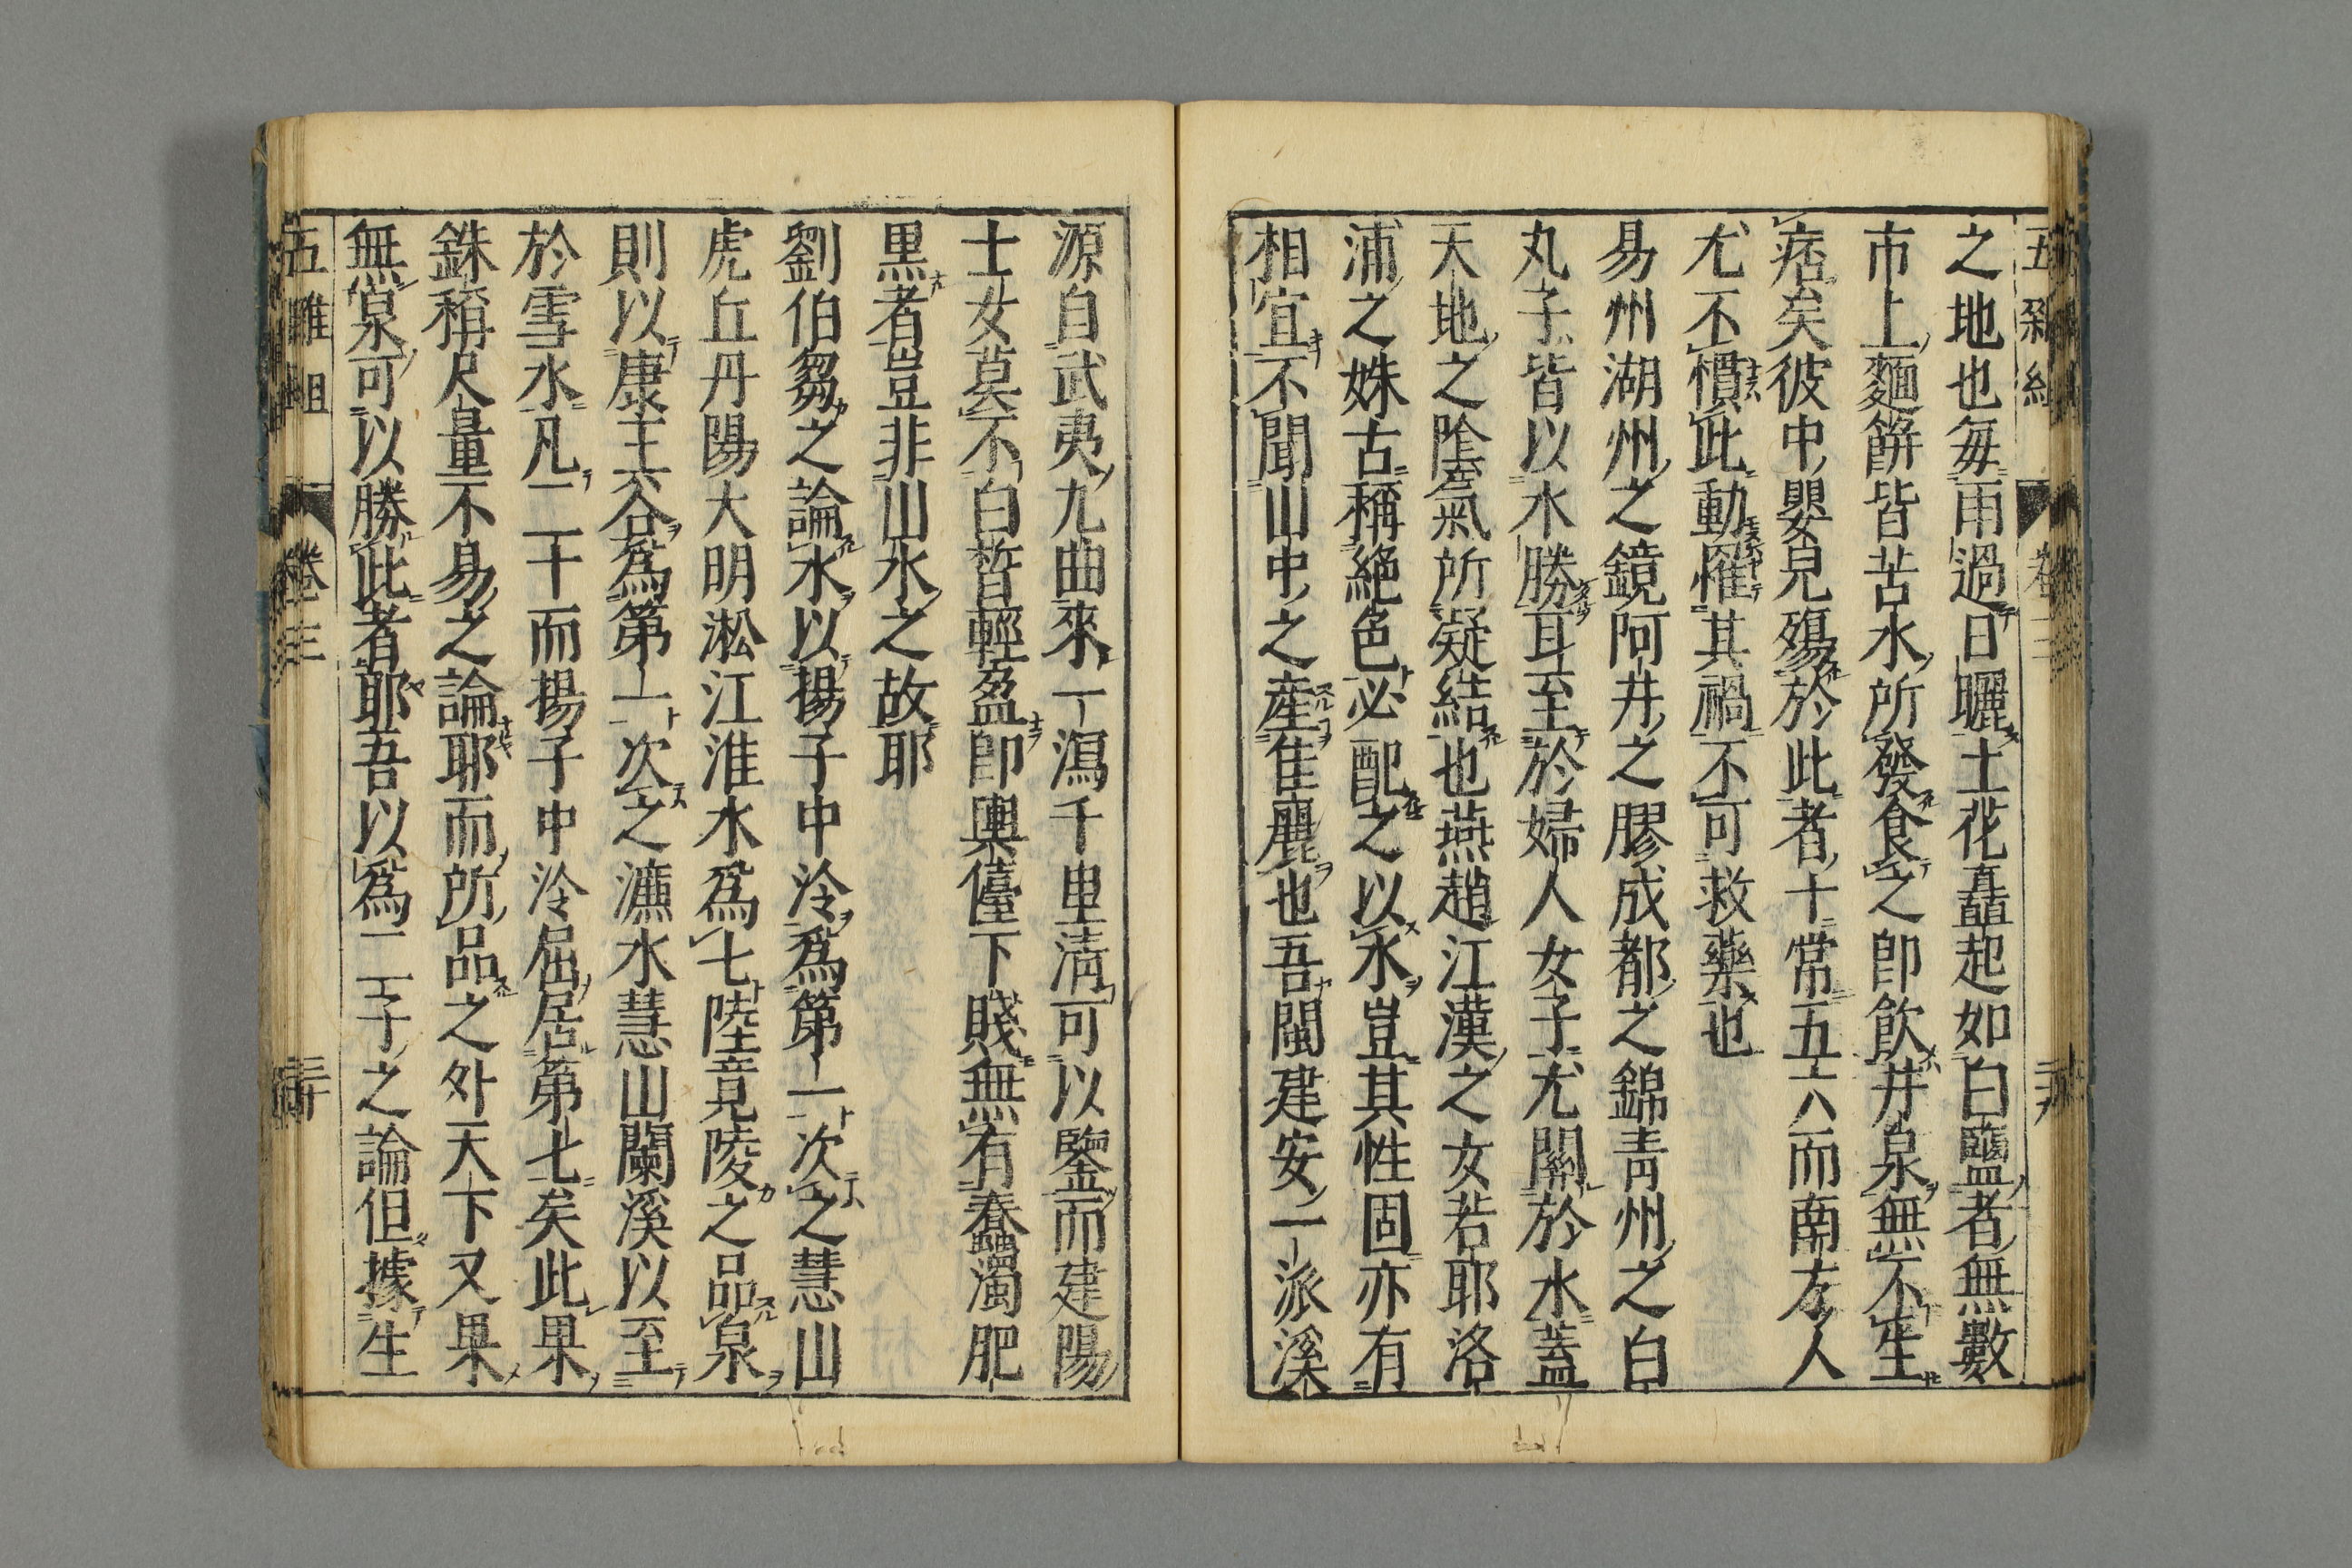 五雜組 卷三
之地也每雨過日曬土花矗起如白鹽者無數
市上麵餠皆苦水所發食之卽飮井泉無不生
痞矣彼中嬰兒殤於此者十常五六而南方人
尤不慣此動罹其禍不可救藥也
易州湖州之鏡阿井之膠成都之錦靑州之白
丸子皆以水勝耳至於婦人女子尤關於水蓋
天地之陰氣所凝結也燕趙江漢之女若耶洛
浦之姝古稱絕色必配之以水豈其性固亦有
相宜不聞山中之產隹麗也吾閩建安一派溪
源自武夷九曲來一瀉千里淸可以鑒而建陽
士女莫不白皙輕盈卽輿儓下賤無有蠢濁肥
黑者豈非山水之故耶
劉伯芻之論水以揚子中泠爲第一次之慧山
虎丘丹陽大明淞江淮水爲七陸竟陵之品泉
則以康王谷爲第一次之㵩水慧山蘭溪以至
於雪水凡二十而揚子中泠屈居第七矣此果
銖稱尺量不易之論耶而所品之外天下又果
無泉可以勝此者耶吾以爲二子之論但據生
五雜組 卷三